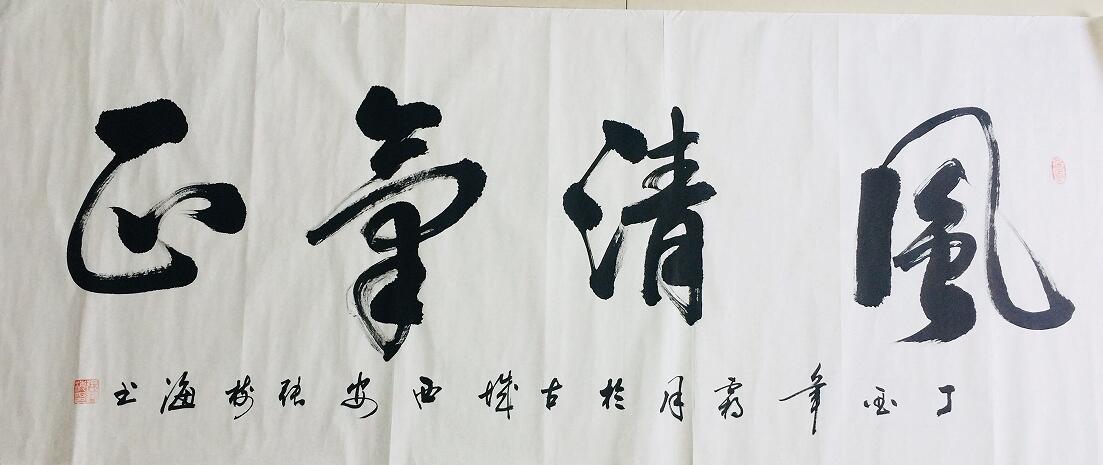 風清氣正
丁酉年霜月於古城西安张树海书